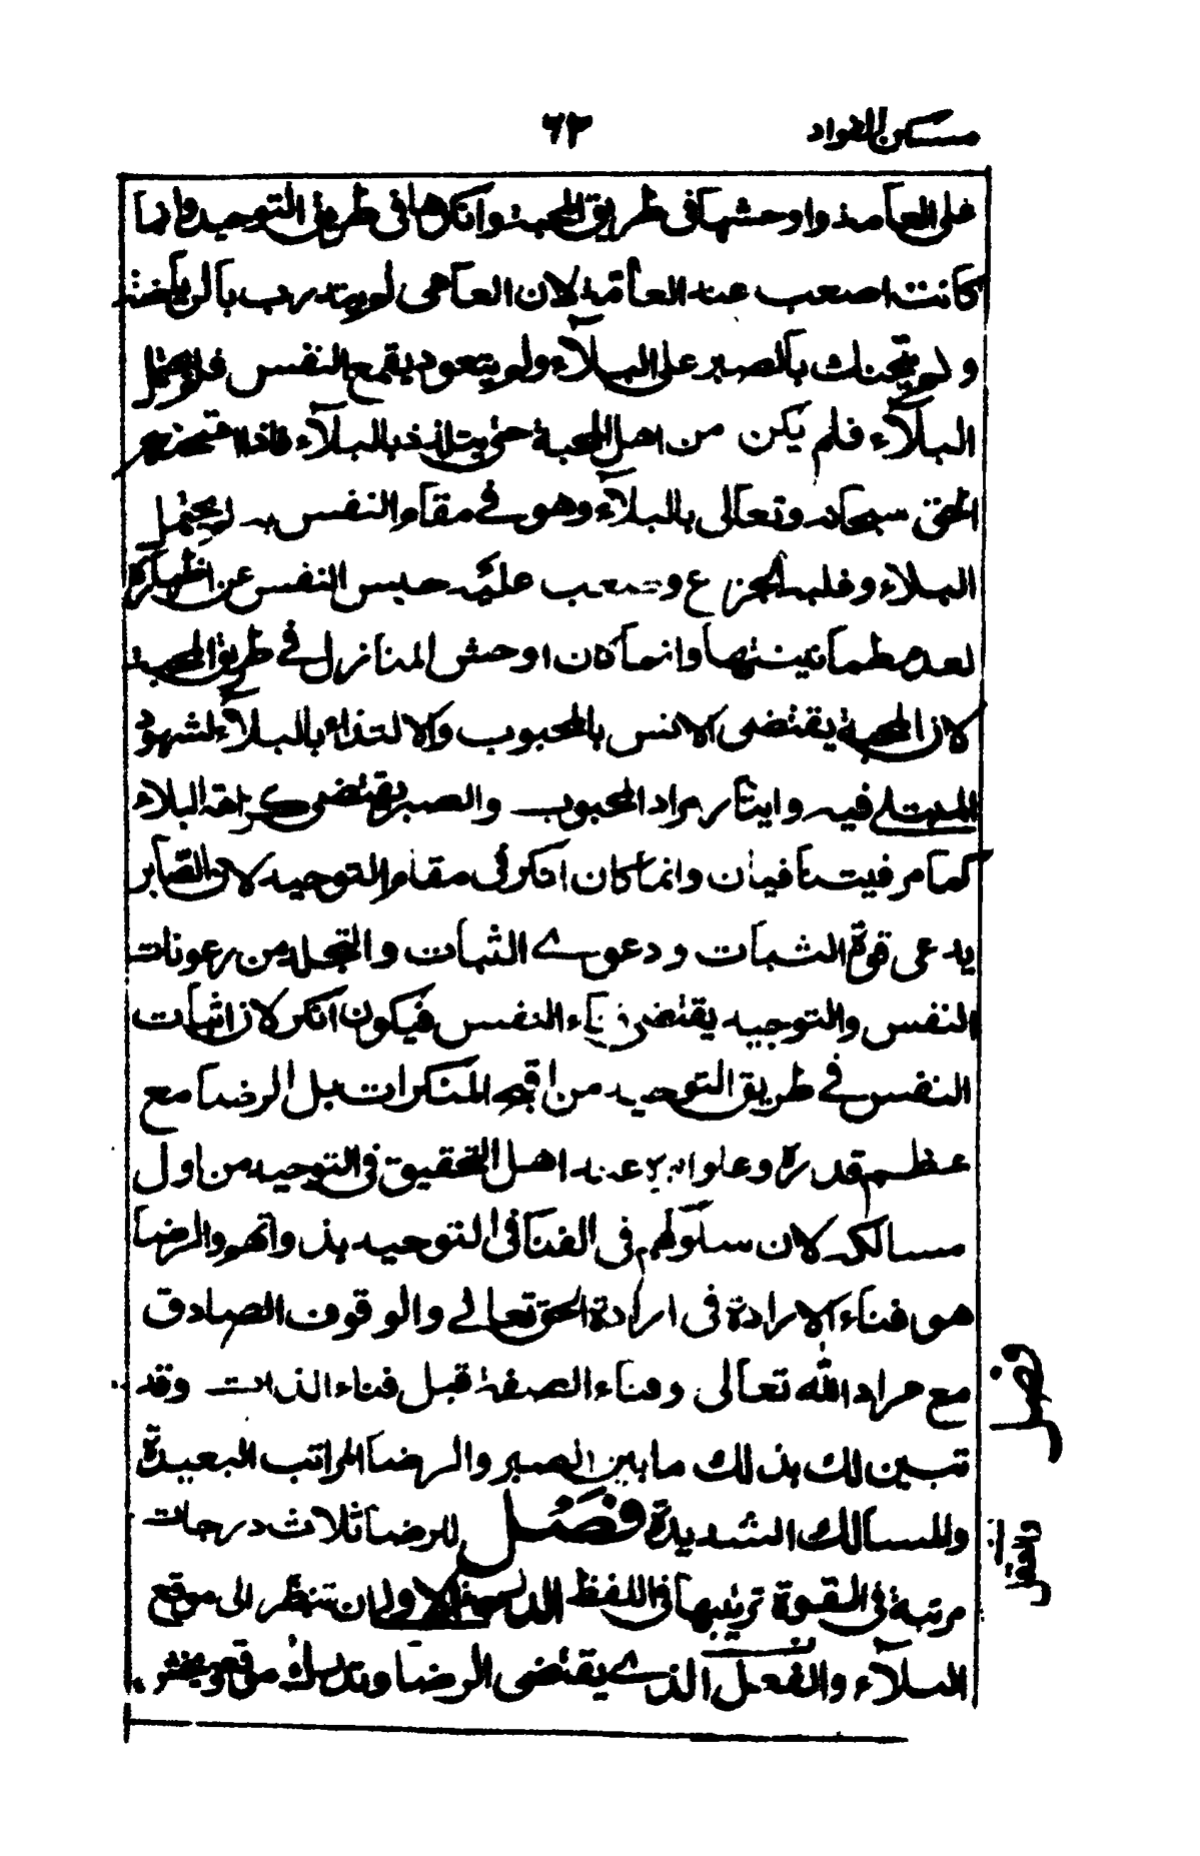 مسكن الفواد ٦٣
على العامة واوحشها فى طريق المحبة وانكرها فى طريق التوحيد وانما
كانت اصعب عند العامة لان العامى لم يتدرب بالرياضة
ولم يتحنك بالصبر على البلآء ولم يتعود بقمع النفس فلم يحتمل
البلآء فلم يكن من اهل المحبة حتى يتلذذ بالبلآء فاذا امتحنه
الحق سبحانه وتعالى بالبلآء وهو فى مقام النفس لم يحتمل
البلاء وغلبه الجزع وصعب عليه حبس النفس عن اظهاره
لعدم طمانينتها وانما كان اوحش المنازل فى طريق المحبة
لان المحبة يقتضى الانس بالمحبوب والالتذاذ بالبلآء لشهود
المبتلى فيه وايثار مراد المحبوب والصبر يقتضى كراهة البلاء
كما مر فيتنافيان وانما كان انكر فى مقام التوحيد لان الصّابر
يدعى قوة الثبات ودعوى الثبات والتجلد من رعونات
النفس والتوحيد يقتضى فناء النفس فيكون انكر لان اثبات
النفس فى طريق التوحيد من اقبح المنكرات بل الرضا مع
عظم قدره وعلو امره عند اهل التحقيق فى التوحيد من اول
مسالكه لان سلوكهم فى الفنا فى التوحيد بذواتهم والرضا
هو فناء الارادة فى ارادة الحق تعالى والوقوف الصادق
مع مراد الله تعالى وفناء الصفة قبل فناء الذات وقد
تبين لك بذلك ما بين الصبر والرضا المراتب البعيدة
والمسالك الشديدة فصل للرضا ثلاث درجات
مرتبة فى القوة ترتيبها فى اللفظ الدرجة الاولى ان تنظر الى موقع
البلآء والفعل الذى يقتضى الرضا وتدرك موقعه ويحس
فصل